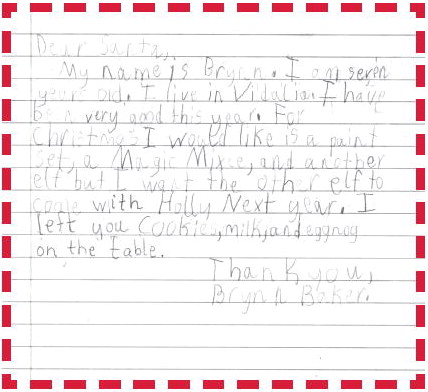 Dear Santa,
My name is Brynn. I am seven
years old. I live in Vidalia. I have
been very good this year. For
Christmas I would like is a paint
set, a Magic Mixie, and another
elf but I want the other elf to
come with Holly Next year. I
left you Cookies, milk, and eggnog
on the table.
Thank you,
Brynn Baker.